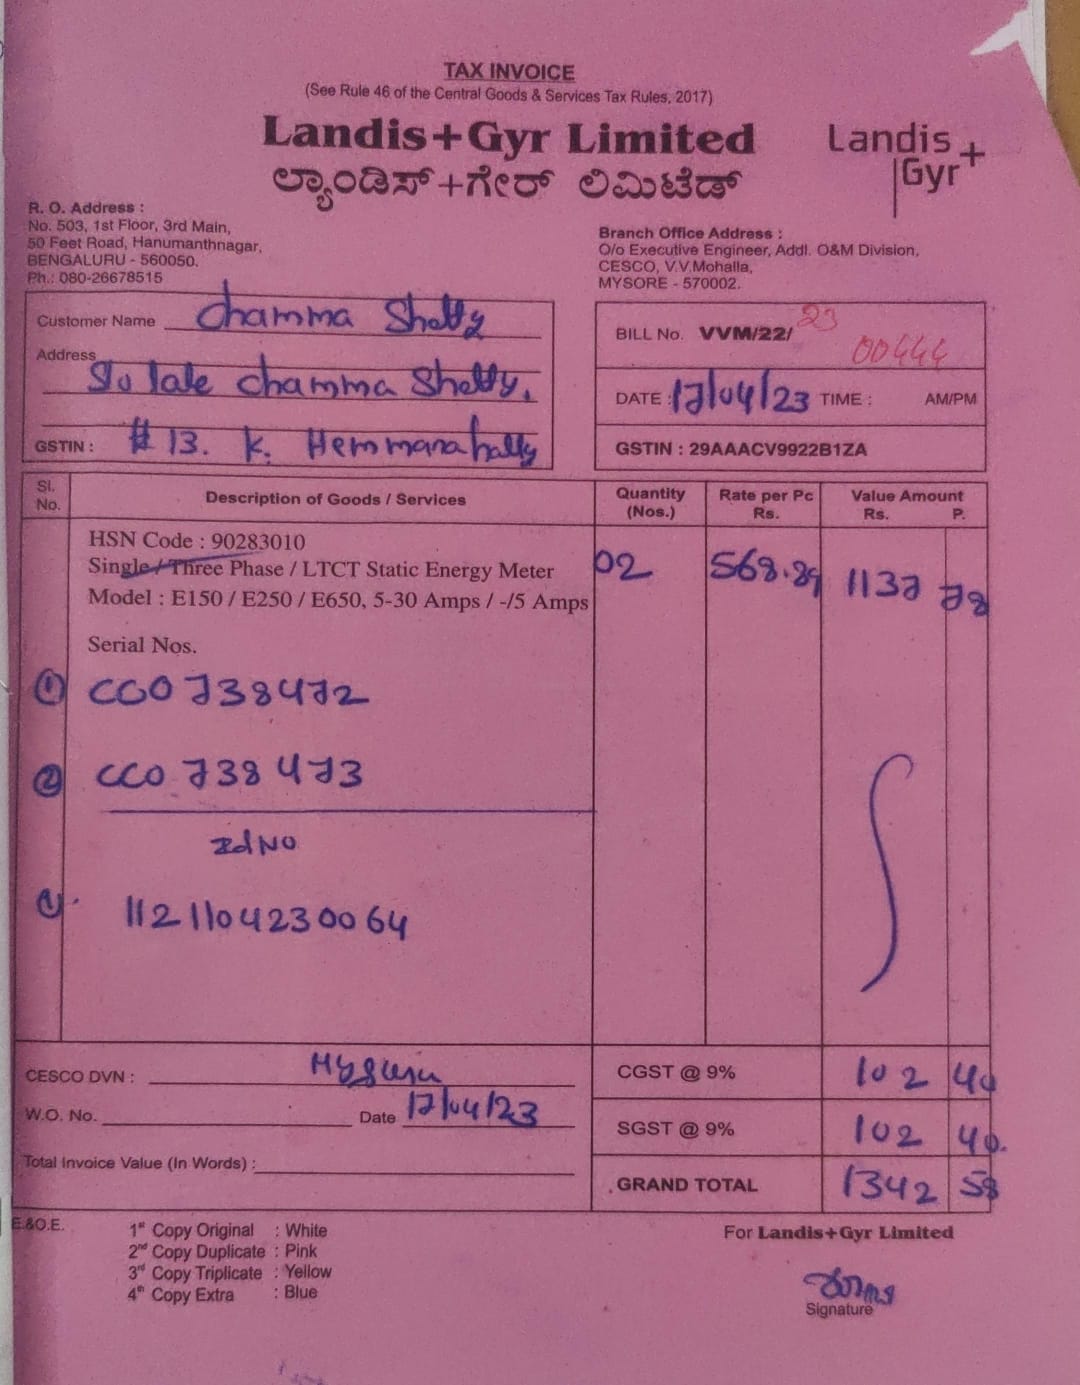 TAX INVOICE
(See Rule 46 of the Central Goods & Services Tax Rules, 2017)
Landis+Gyr Limited
ಲ್ಯಾಂಡಿಸ್+ಗೇರ್ ಲಿಮಿಟೆಡ್
Landis
Gyr+
R. O. Address :
No. 503, 1st Floor, 3rd Main,
50 Feet Road, Hanumanthnagar,
BENGALURU - 560050.
Ph.: 080-26678515
Branch Office Address :
O/o Executive Engineer, Addl. O&M Division,
CESCO, V.V.Mohalla,
MYSORE - 570002.
Customer Name Chamma Shetty
Address S/o late Chamma Shetty,
GSTIN : # 13. K. Hemmanahally
BILL No. VVM/22/23 00444
DATE : 17/04/23 TIME : AM/PM
GSTIN : 29AAACV9922B1ZA
Sl. No. Description of Goods / Services Quantity (Nos.) Rate per Pc Rs. Value Amount Rs. P.
HSN Code : 90283010
Single / Three Phase / LTCT Static Energy Meter 02 568.89 1137 78
Model : E150 / E250 / E650, 5-30 Amps / -/5 Amps
Serial Nos.
① CC0738472
② CC0738473
Id NO
① 11211042300 64
CESCO DVN : Mysuru
W.O. No. Date 17/04/23
Total Invoice Value (In Words) :
CGST @ 9% 102 40
SGST @ 9% 102 40.
GRAND TOTAL 1342 58
E.&O.E.
1st Copy Original : White
2nd Copy Duplicate : Pink
3rd Copy Triplicate : Yellow
4th Copy Extra : Blue
For Landis+Gyr Limited
Signature